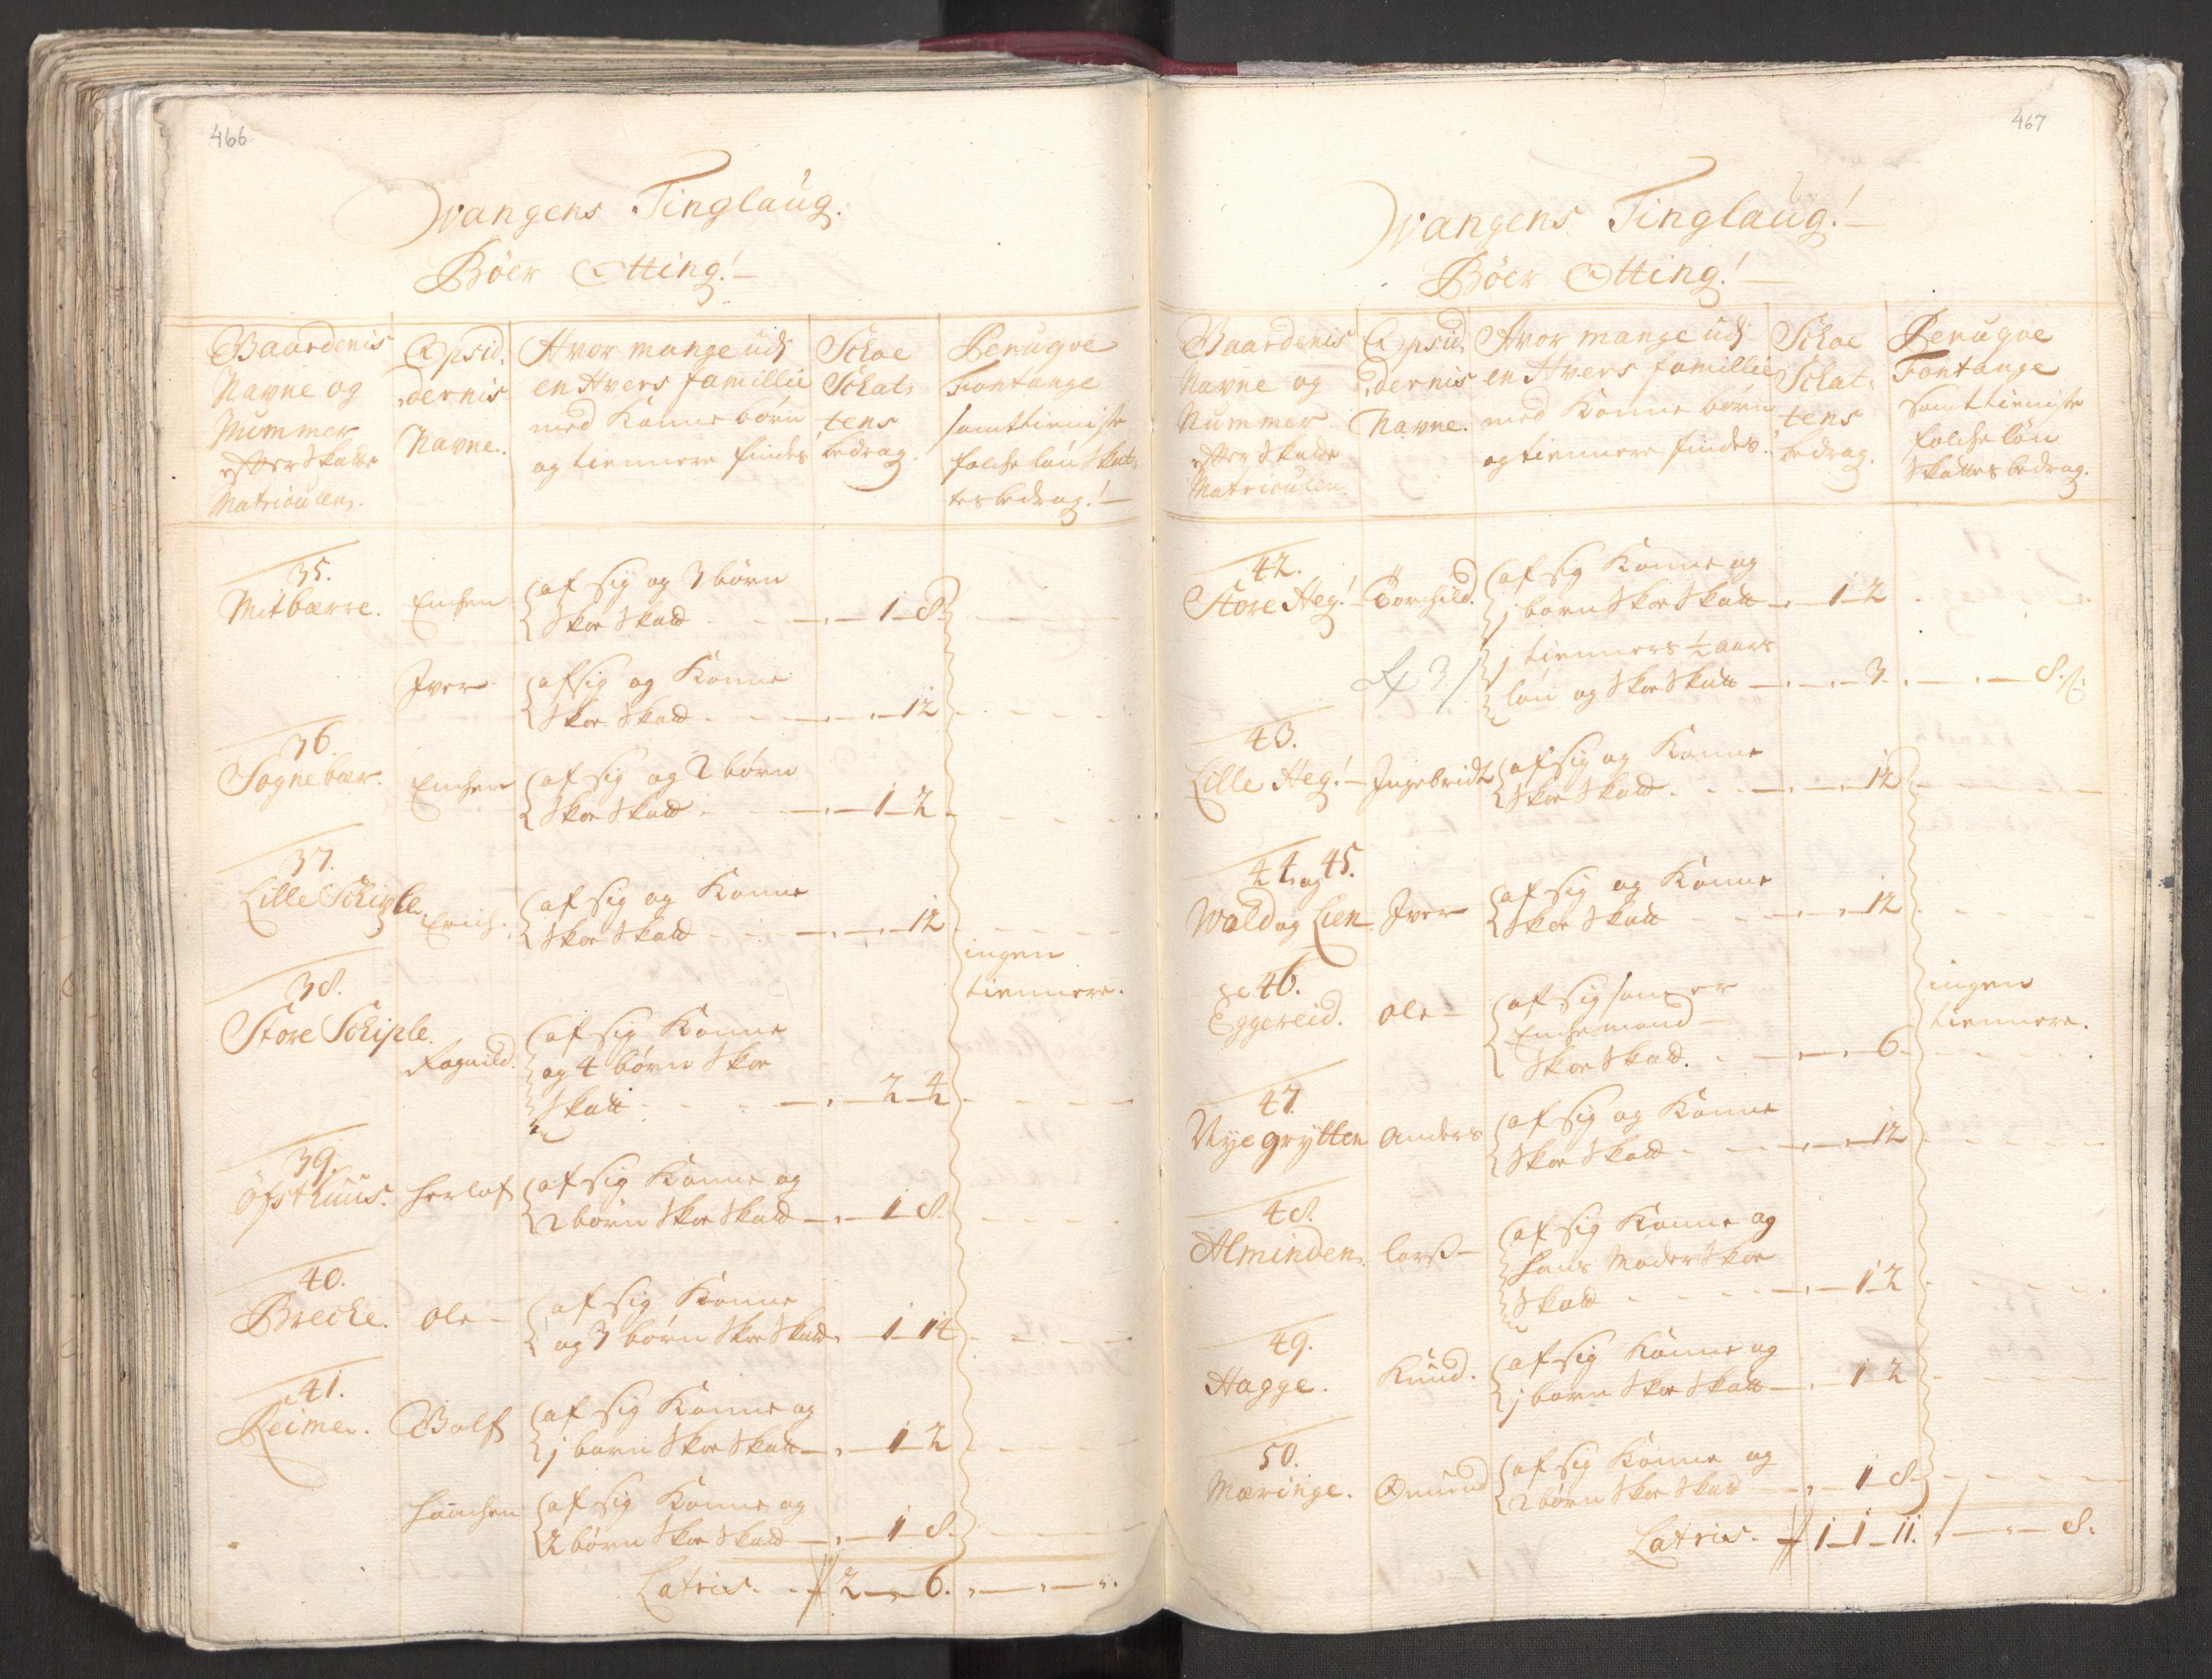 466
Wangens Tinglaug.
Böer Otting!
Gaardenis Navne og Nummer efter Skatte Matriculen.
Opsiddernis Navne.
Hvor mange udj en Hvers familie med Konne börn og tiennere findes
Skoe Skattens bedrag.
Peruqve Fontange samt tieniste folche lön Skattes bedrag!
35.
Mitbærre. Enchen af sig og 3 börn
Skoe Skatt 1 - 8
Iver af sig og Konne
Skoe Skatt 12
36.
Sognebær. Enchen af sig og 2 börn
Skoe Skatt 1 - 2
37.
Lille Schiple. Erich. af sig og Konne
Skoe Skatt 12
ingen
tiennere.
38.
Store Schiple. Ragnild. af sig Konne
og 4 börn Skoe
Skatt 2 - 4
39.
Öfsthuus. Herlof af sig Konne og
2 börn Skoe Skatt 1 - 8
40.
Brecke. Ole af sig Konne
og 3 börn Skoe Skatt 1 - 14
41.
Reime. Gulf af sig Konne og
j barn Skoe Skatt 1 - 2
Haachen af sig Konne og
2 börn Skoe Skatt 1 - 8
Latris. 2 - 6.
467
Wangens Tinglaug!
Böer Otting!
Gaardenis Navne og Nummer efter Skatte Matriculen.
Opsiddernis Navne.
Hvor mange udj en Hvers familie med Konne börn og tiennere findes.
Skoe Skattens bedrag.
Peruqve Fontange samt tieniste folche lön Skattes bedrag.
42.
Store Heg! Torchild. af sig Konne og
j barn Skoe Skatt 1 - 2
j tienners ½ aars
lön og Skoe Skatt 3 8 ß
43.
Lille Heg! Ingebridt af sig og Konne
Skoe Skatt 12
44 og 45.
Wold og Lien Iver af sig og Konne
Skoe Skatt 12
46.
Eggereid. Ole af sig som er
Enchemand
Skoe Skatt. 6
ingen
tiennere.
47.
Nye grytten Anders af sig og Konne
Skoe Skatt 12
48.
Alminden. Larß af sig Konne og
hans Moder Skoe
Skatt 1 2
49.
Hagge. Knud. af sig Konne og
j barn Skoe Skatt 1 - 2
50.
Mæringe. Omund af sig Konne og
2 börn Skoe Skatt 1 - 8
Latris. 1 - 1 - 11. 8.